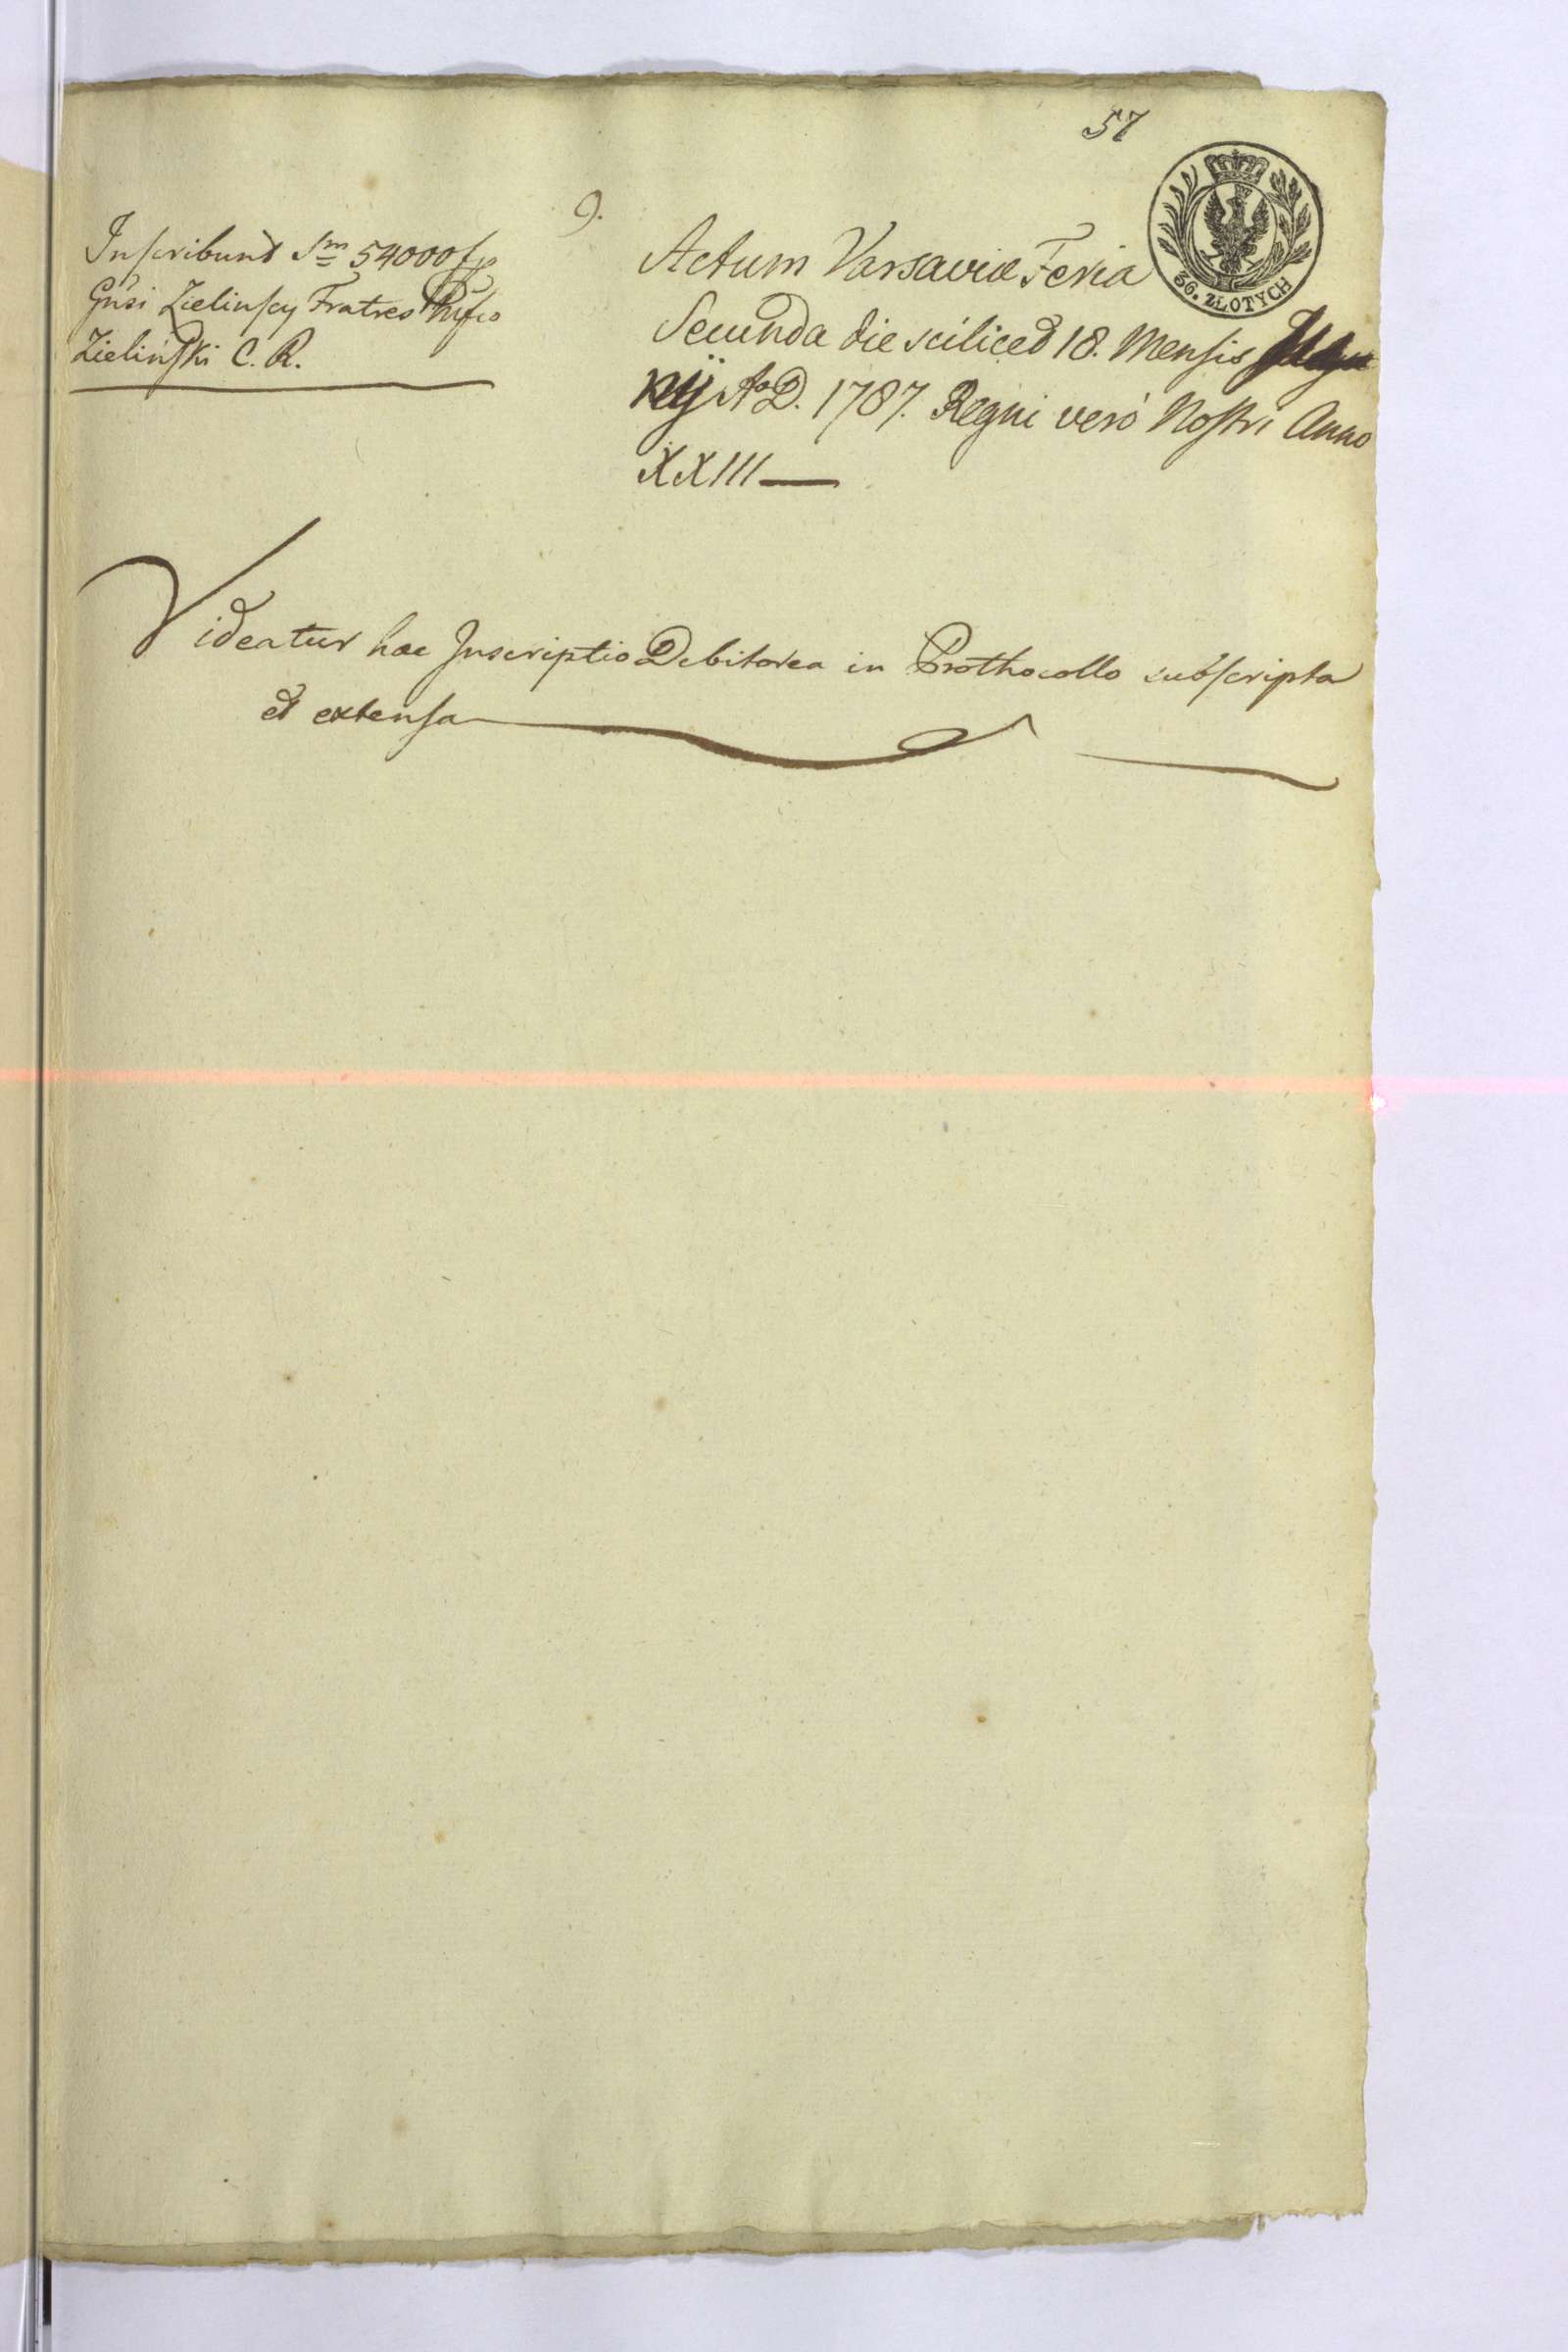 57
9.
Inscribunt Sm 54000 fp
Gnsi Zielinscy Fratres
Zieliński C. R.
Actum Varsaviæ Feria
Secunda die scilicet 18. Mensis
nij Ao D. 1787. Regni veró Nostri Anno
XXIII
36. ZŁOTYCH
Videatur hæc Inscriptio Debitorea in Prothocollo subscripta
et extensa